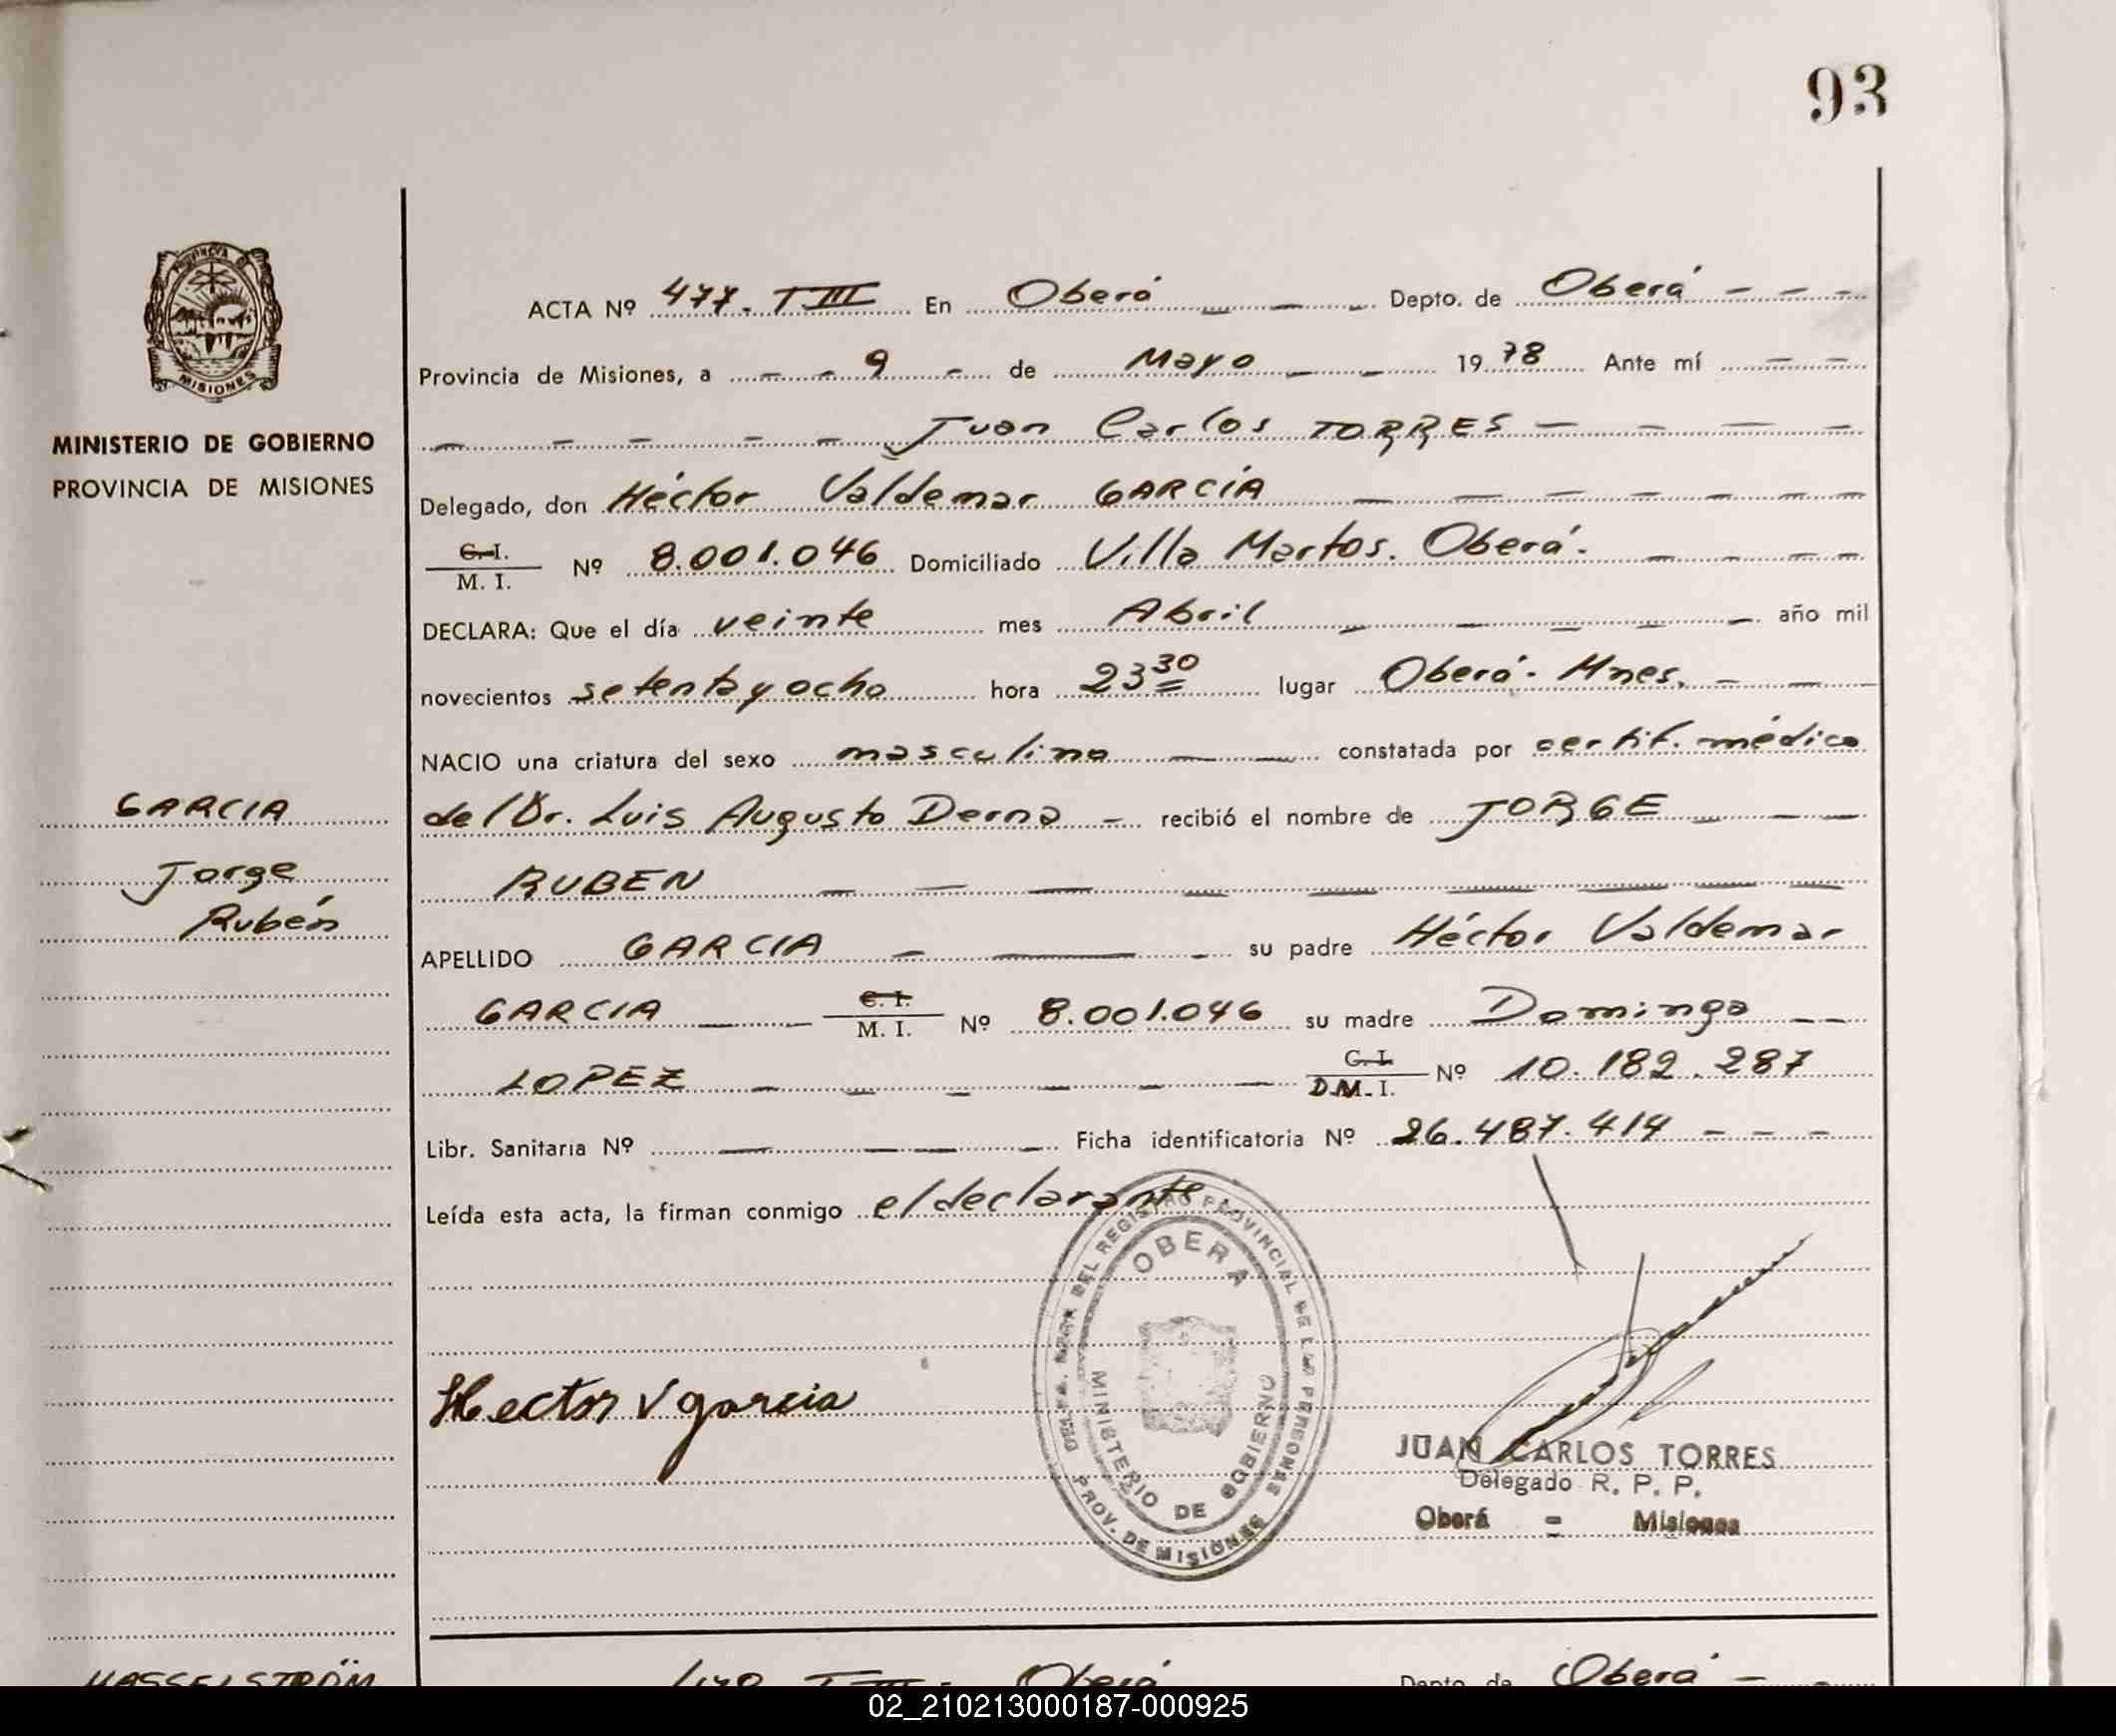 93
PROVINCIA DE
MISIONES
MINISTERIO DE GOBIERNO
PROVINCIA DE MISIONES
GARCIA
Jorge
Rubén
ACTA Nº 477. T III En Oberá Depto. de Oberá
Provincia de Misiones, a 9 de Mayo 1978 Ante mí
Juan Carlos TORRES
Delegado, don Héctor Valdemar GARCÍA
C. I.
M. I. Nº 8.001.046 Domiciliado Villa Martos. Oberá.
DECLARA: Que el día veinte mes Abril año mil
novecientos setenta y ocho hora 23 30 lugar Oberá - Mnes.
NACIO una criatura del sexo masculino constatada por certif. médico
del Dr. Luis Augusto Derna recibió el nombre de JORGE
RUBEN
APELLIDO GARCIA su padre Héctor Valdemar
GARCIA C. I. M. I. Nº 8.001.046 su madre Dominga
LOPEZ C. I. D.M. I. Nº 10.182.287
Libr. Sanitaria Nº Ficha identificatoria Nº 26.487.414
Leída esta acta, la firman conmigo el declarante
DEL REGISTRO PROVINCIAL DE LAS PERSONAS
OBERA
MINISTERIO DE GOBIERNO
PROV. DE MISIONES
Hector V garcia
JUAN CARLOS TORRES
Delegado R. P. P.
Oberá - Misiones
HASSELSTRÖM
Oberá Depto de Oberá
02_210213000187-000925